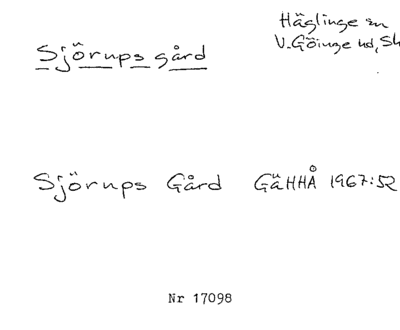 Sjörups gård
Häglinge sn
V.Göinge hd, Sk
Sjörups Gård GäHHÅ 1967:52
Nr 17098